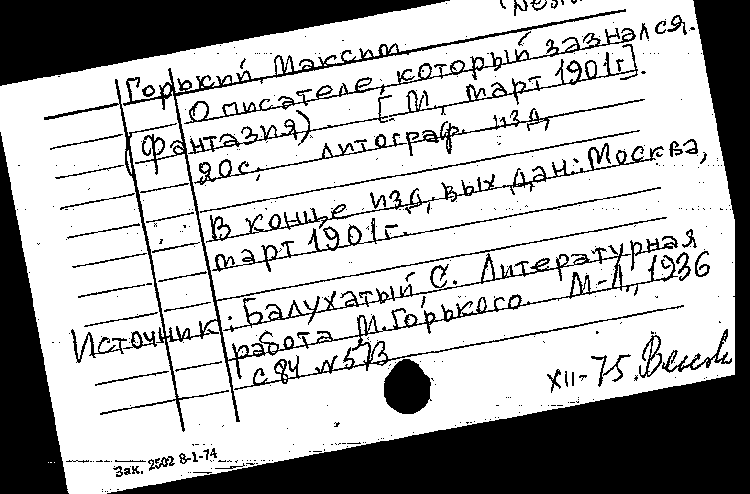 Горький, Максим.
О писателе, который зазнался.
(фантазия) [М, март 1901г].
20с, литограф. изд,
В конце изд, вых дан.: Москва,
март 1901г.
Источник: Балухатый, С. Литературная
работа М.Горького. М-Л., 1936
с 84 №573
XII-75.
Зак. 2502 8-1-74